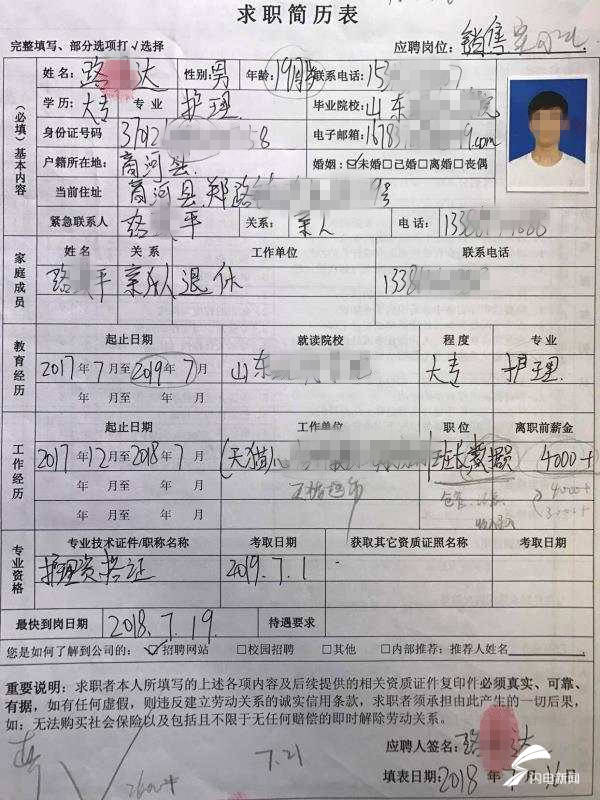 求职简历表
完整填写、部分选项打√选择 应聘岗位: 销售
(必填)基本内容
姓名: 路 达 性别: 男 年龄: 19周岁 联系电话: 15 7
学历: 大专 专业 护理 毕业院校: 山东 院
身份证号码 37012 58 电子邮箱: 16783 9.com
户籍所在地: 商河县 婚姻: ☑未婚□已婚□离婚□丧偶
当前住址 商河县郑路 9号
紧急联系人 路 平 关系: 亲人 电话: 1338
家庭成员
姓名 关系 工作单位 联系电话
路 平 亲人 退休 1338
教育经历
起止日期 就读院校 程度 专业
2017年7月至2019年7月 山东 大专 护理
年 月至 年 月
工作经历
起止日期 工作单位 职位 离职前薪金
2017年12月至2018年7月 (天猫 班长 数据员 4000+
年 月至 年 月 4000+
年 月至 年 月
专业资格
专业技术证件/职称名称 考取日期 获取其它资质证照名称 考取日期
护理资格证 2019.7.1
最快到岗日期 2018.7.19 待遇要求
您是如何了解到公司的: ☑招聘网站 □校园招聘 □其他 □内部推荐: 推荐人姓名
重要说明: 求职者本人所填写的上述各项内容及后续提供的相关资质证件复印件必须真实、可靠、
有据, 如有任何虚假, 则违反建立劳动关系的诚实信用条款, 求职者须承担由此产生的一切后果,
如: 无法购买社会保险以及包括且不限于无任何赔偿的即时解除劳动关系。
应聘人签名: 路 达
7.21
填表日期: 2018年7月16日
闪电新闻